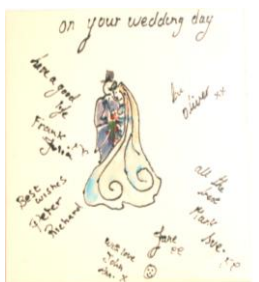 on your wedding day
have a good
life
Frank
Julia
luv
Oliver xx
Best
wishes
Peter
Richard
all the
best
Mark
with love
John
Jane